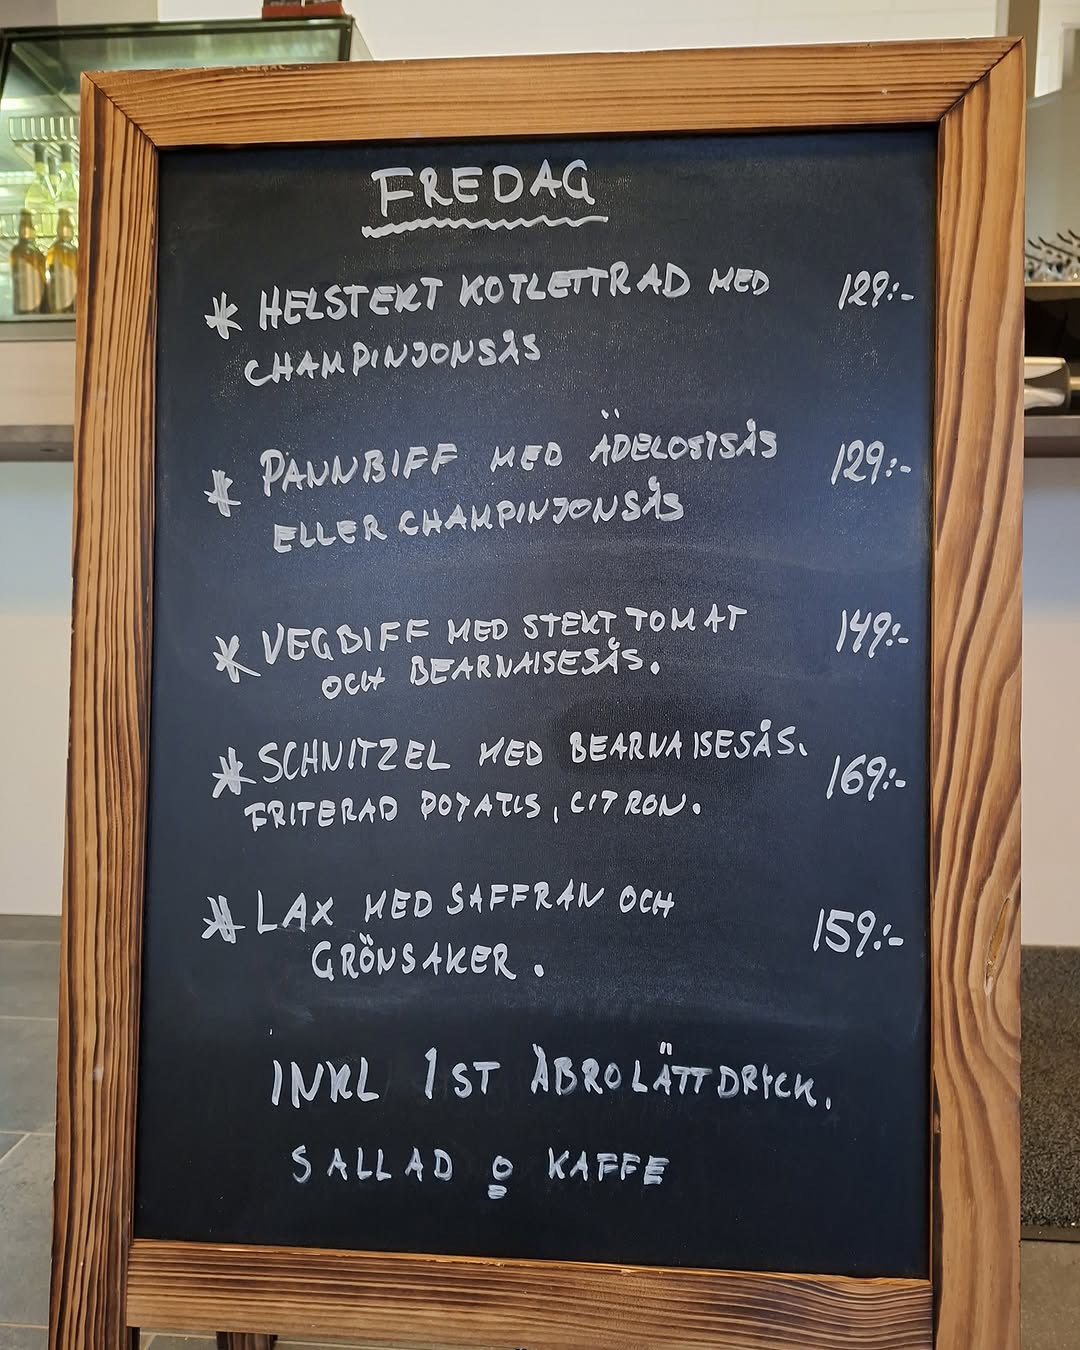 FREDAG
* HELSTEKT KOTLETTRAD MED 129:-
CHAMPINJONSÅS
* PANNBIFF MED ÄDELOSTSÅS 129:-
ELLER CHAMPINJONSÅS
* VEGBIFF MED STEKT TOMAT 149:-
OCH BEARNAISESÅS.
* SCHNITZEL MED BEARNAISESÅS. 169:-
FRITERAD POTATIS, CITRON.
* LAX MED SAFFRAN OCH 159:-
GRÖNSAKER.
INKL 1ST ÅBRO LÄTTDRYCK,
SALLAD o KAFFE